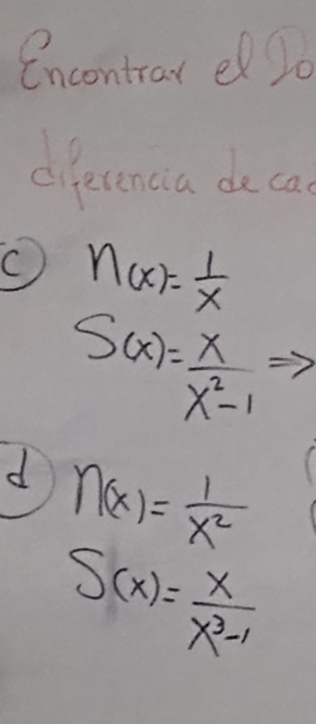 Encontrar el Do
diferencia de cad
c) n(x)= 1/x
S(x)= x/(x²-1) ⇒
d) n(x)= 1/x²
S(x)= x/(x³-1)